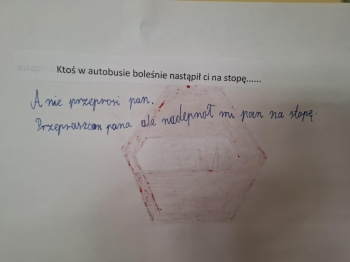 Ktoś w autobusie boleśnie nastąpił ci na stopę......
A nie przeprosi pan.
Przepraszam pana ale nadepnoł mi pan na stopę.